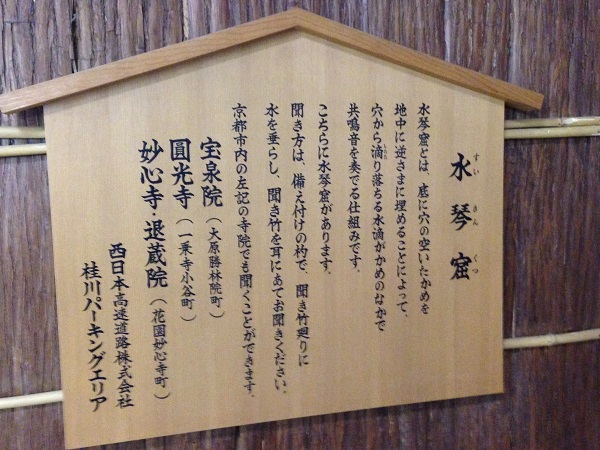 水琴窟
すいきんくつ
水琴窟とは、底に穴の空いたかめを
地中に逆さまに埋めることによって、
穴から滴り落ちる水滴がかめのなかで
共鳴音を奏でる仕組みです。
こちらに水琴窟があります。
聞き方は、備え付けの杓で、聞き竹廻りに
水を垂らし、聞き竹を耳にあてお聞きください。
京都市内の左記の寺院でも聞くことができます。
宝泉院（大原勝林院町）
圓光寺（一乗寺小谷町）
妙心寺・退蔵院（花園妙心寺町）
西日本高速道路株式会社
桂川パーキングエリア